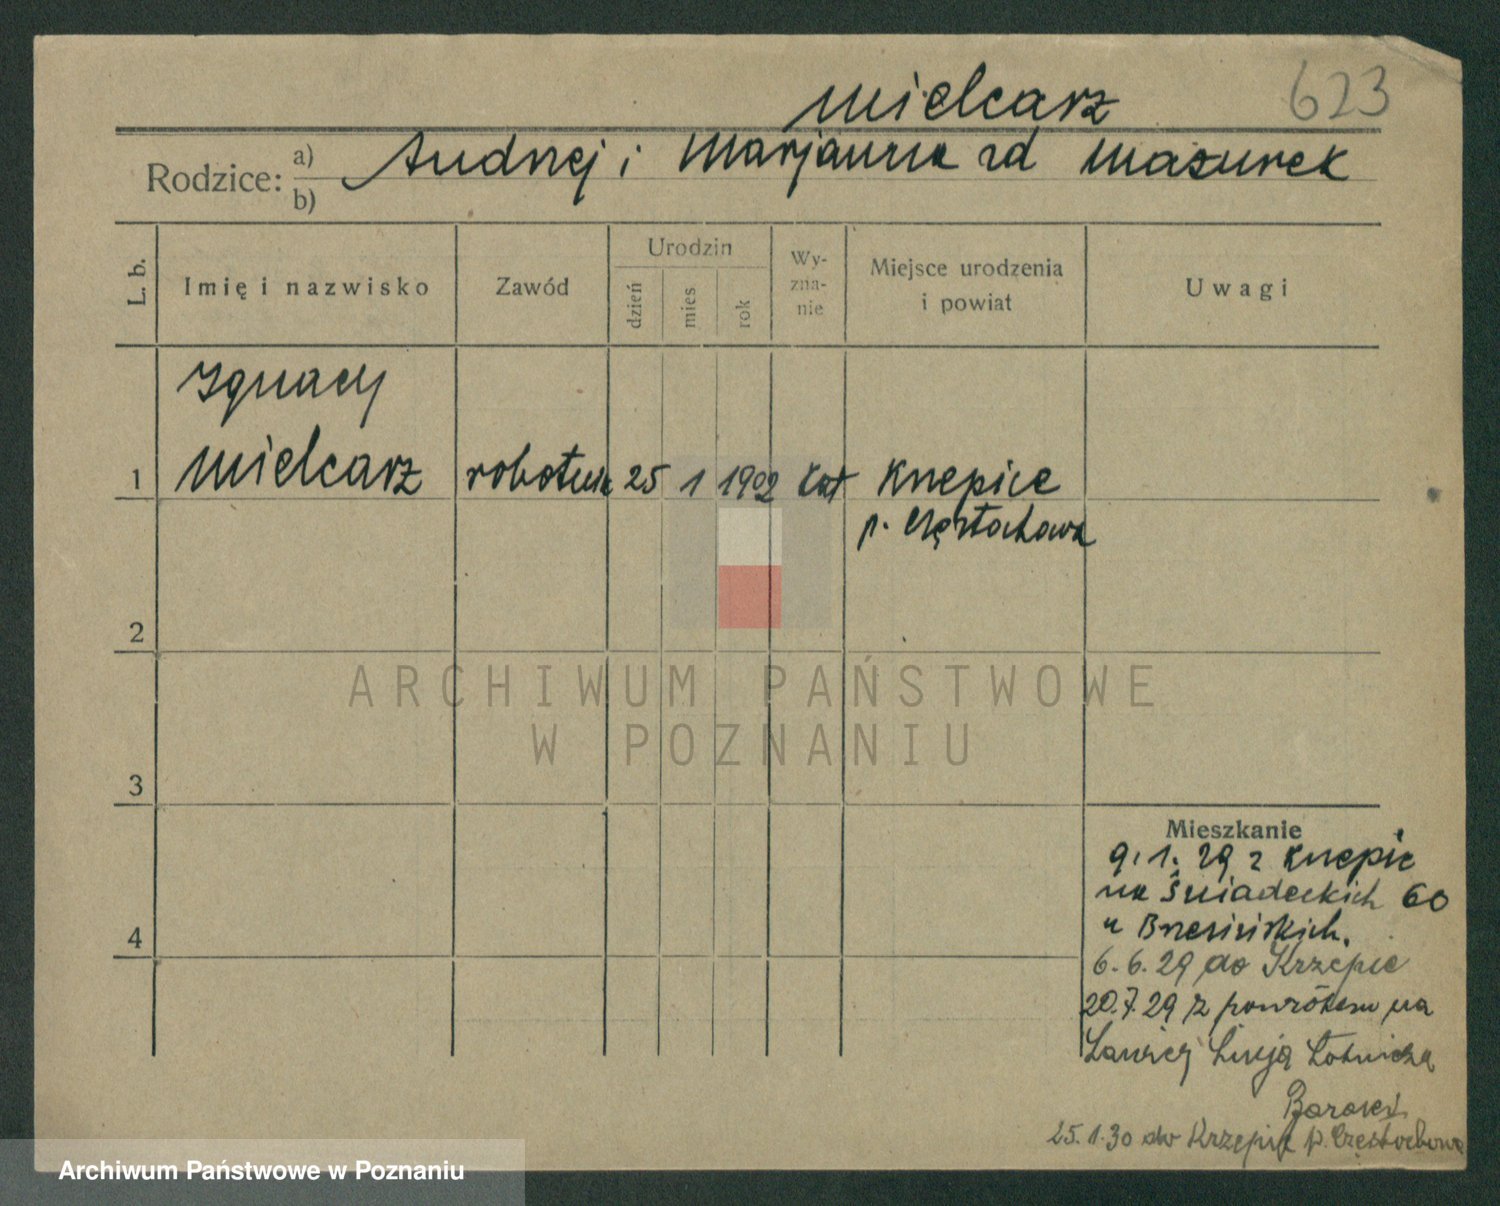 623
Mielcarz
Rodzice: a) Andrzej i Marjanna zd Mazurek
b)
L. b. Imię i nazwisko Zawód Urodzin dzień mies rok Wy-zna-nie Miejsce urodzenia i powiat Uwagi
Ignacy
1 Mielcarz robotnik 25 1 1902 kat Krzepice
p. Częstochowa
2
ARCHIWUM PAŃSTWOWE
W POZNANIU
3
Mieszkanie
9.1.29 z Krzepic
na Śniadeckich 60
u Brzezińskich.
4
6.6.29 do Krzepic
20.7.29 z powrotem na
Ławicy Linja Lotnicza
25.1.30 do Krzepic p. Częstochowa
Archiwum Państwowe w Poznaniu